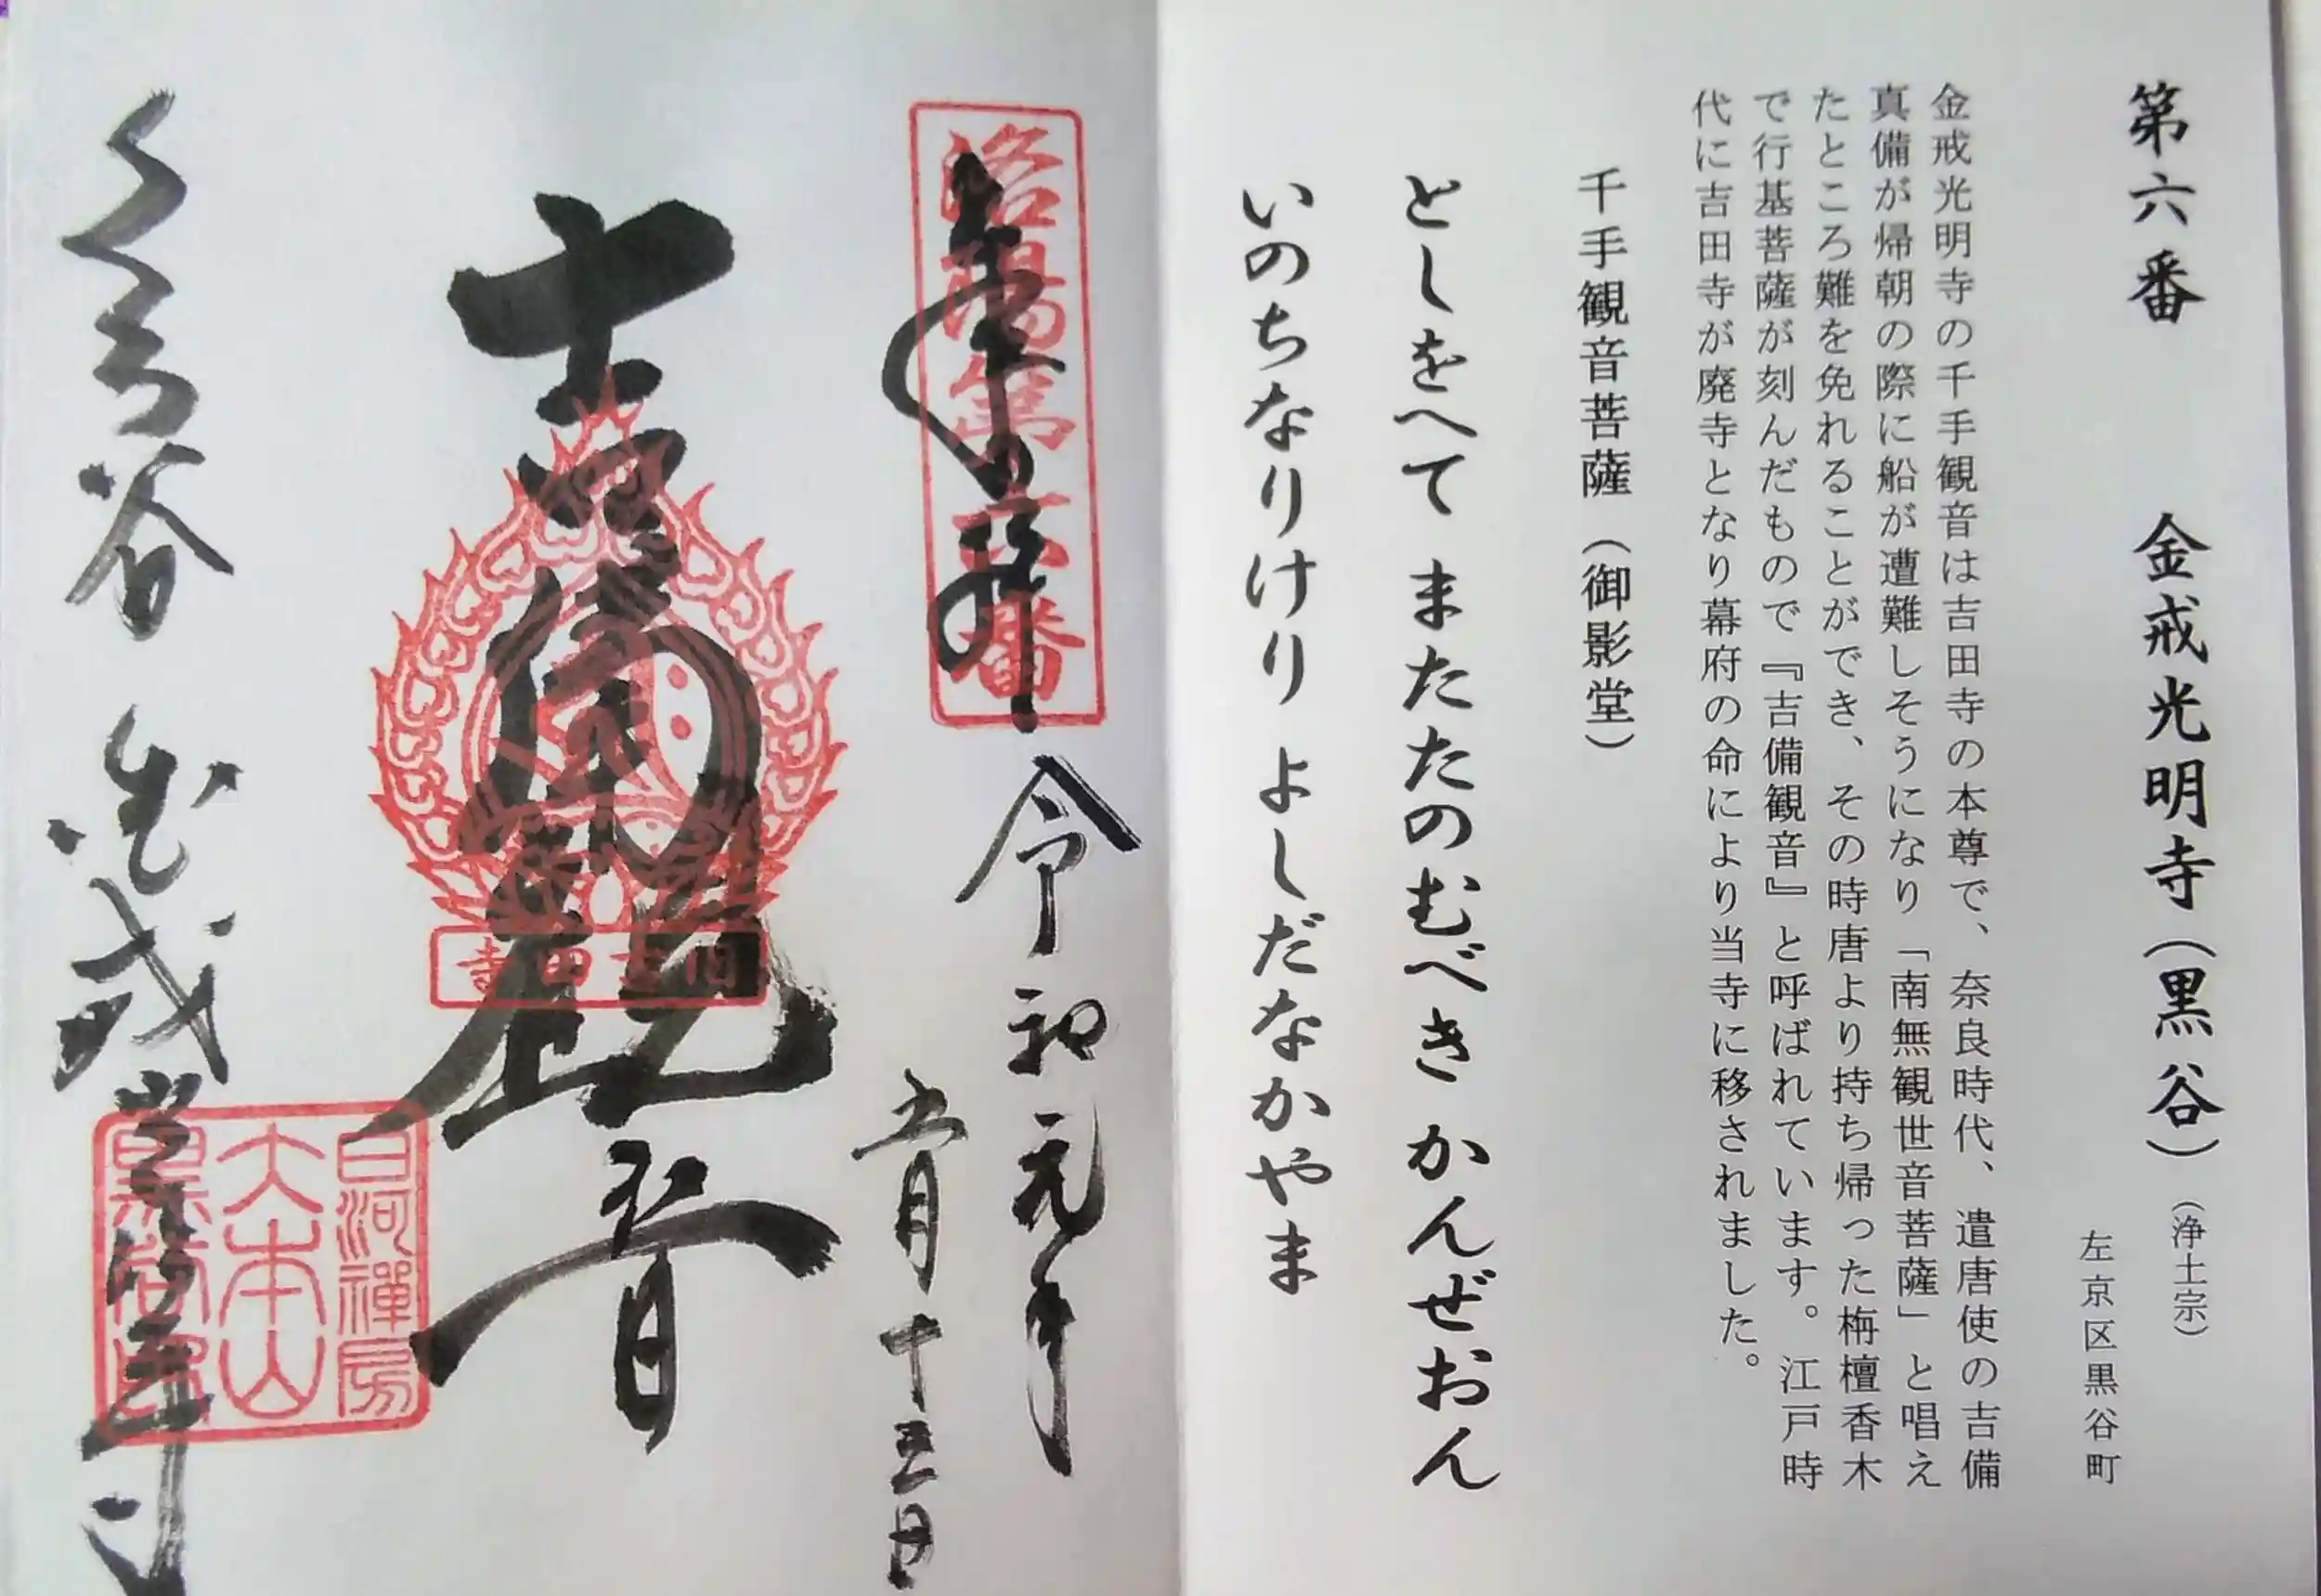 第六番　金戒光明寺（黒谷）（浄土宗）
左京区黒谷町
金戒光明寺の千手観音は吉田寺の本尊で、奈良時代、遣唐使の吉備
真備が帰朝の際に船が遭難しそうになり「南無観世音菩薩」と唱え
たところ難を免れることができ、その時唐より持ち帰った栴檀香木
で行基菩薩が刻んだもので『吉備観音』と呼ばれています。江戸時
代に吉田寺が廃寺となり幕府の命により当寺に移されました。
千手観音菩薩（御影堂）
としをへて またたのむべき かんぜおん
いのちなりけり よしだなかやま
奉拝
洛陽第六番
令和元年
五月十三日
吉備観音
旧吉田寺
くろ谷 金戒光明寺
白河禅房
大本山
黒谷